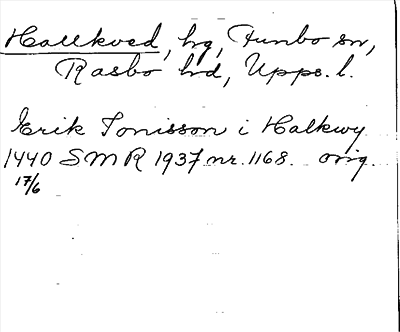 Hallkved, hg, Funbo sn,
Rasbo hd, Upps. l.
Erik Tonisson i Halkwy
1440 SMR 1937 nr. 1168. orig.
17/6